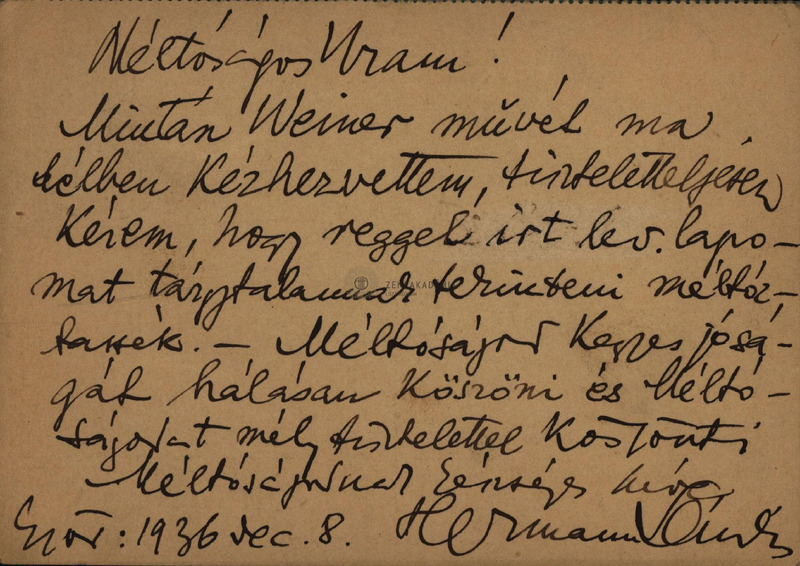 Méltóságos Uram!
Miután Weiner művét ma
délben Kézhezvettem, tisztelettelj​esen
Kérem, hogy reggel írt lev. lapo-
mat tárgytalannak tekinteni méltóz-
tassék. – Méltóságod Kegyes jósá-
gát hálásan Köszöni és Méltó-
ságodat mély tisztelettel Köszönti
Méltóságodnak híve
Győr: 1936 dec. 8. Hermann László
ZENEAKADÉMIA